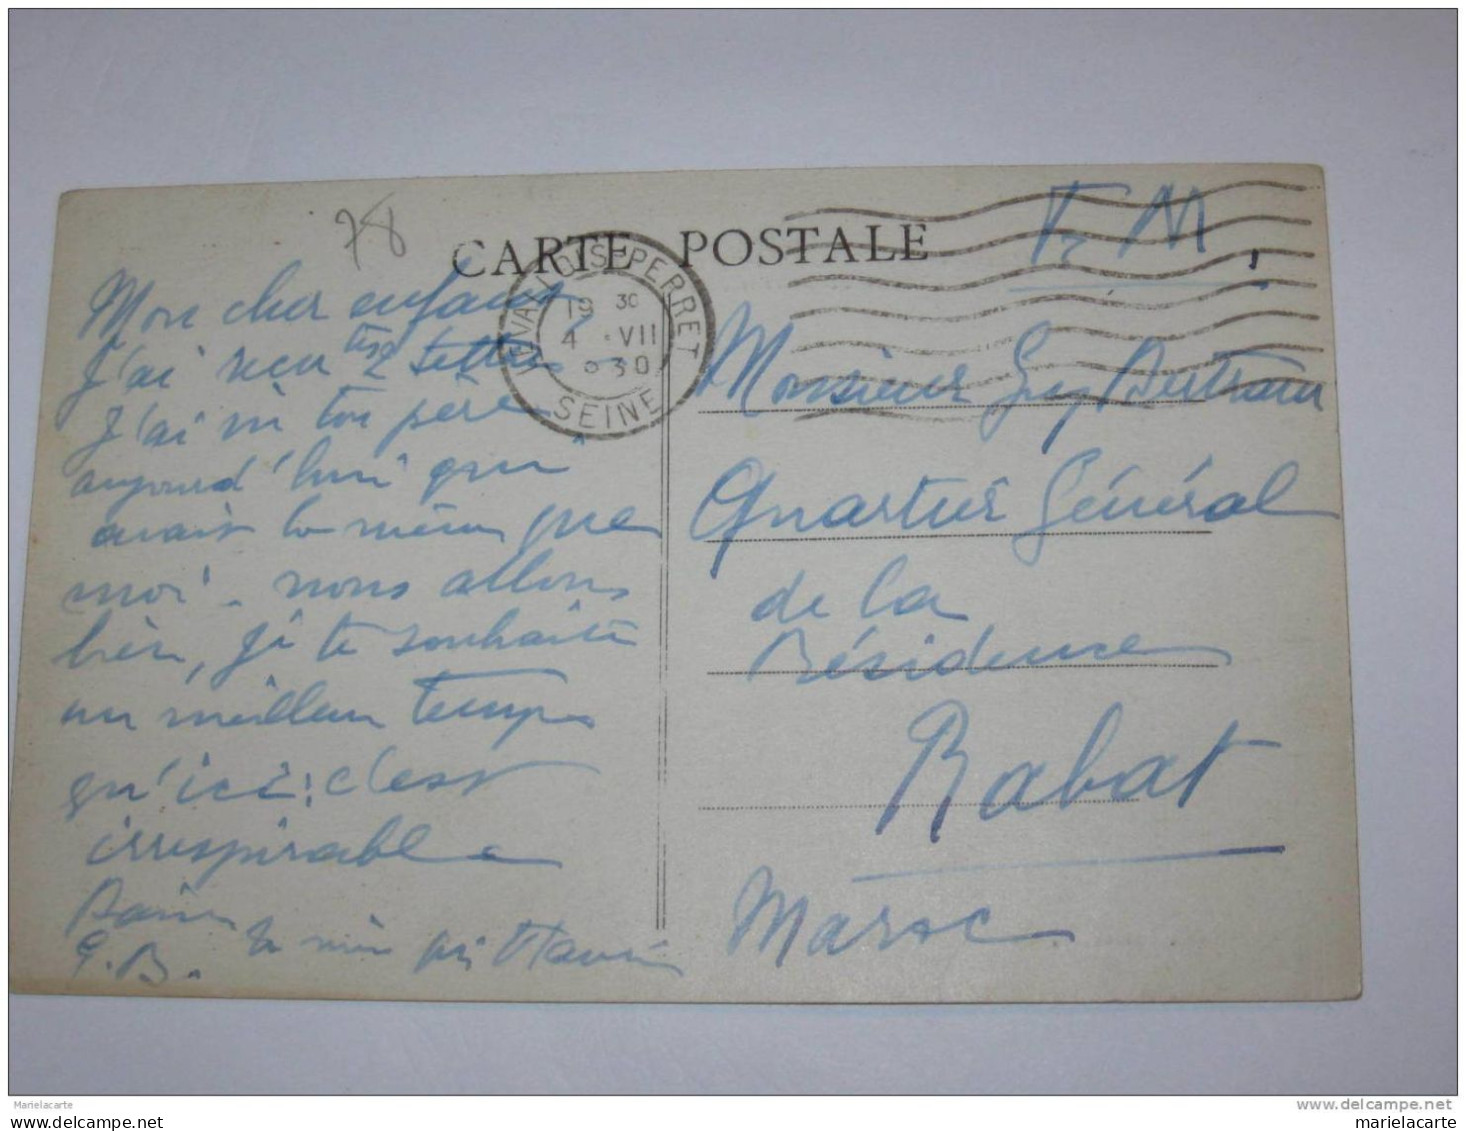 78
CARTE POSTALE
F. M.
LEVALLOIS-PERRET
19 30
4 ·VII
830
SEINE
Mon cher enfant
J'ai reçu tes 2 lettres
J'ai vu ton père
aujourd'hui qui
avait la même que
moi. nous allons
bien, je te souhaite
un meilleur temps
qu'ici: c'est
irrespirable
G.B.
Monsieur Guy Bertrand
Quartier Général
de la
Résidence
Rabat
Maroc
Marielacarte
www.delcampe.net
marielacarte.com
marielacarte